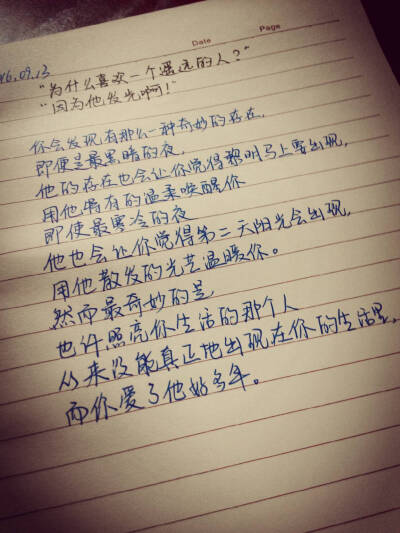 Date
Page
16.09.13
"为什么喜欢一个遥远的人？"
"因为他发光啊！"
你会发现有那么一种奇妙的存在，
即便是最黑暗的夜，
他的存在也会让你觉得黎明马上要出现，
用他特有的温柔唤醒你
即使最寒冷的夜
他也会让你觉得第二天阳光会出现，
用他散发的光芒温暖你。
然而最奇妙的是
也许照亮你生活的那个人
从来没能真正地出现在你的生活里，
而你爱了他好多年。